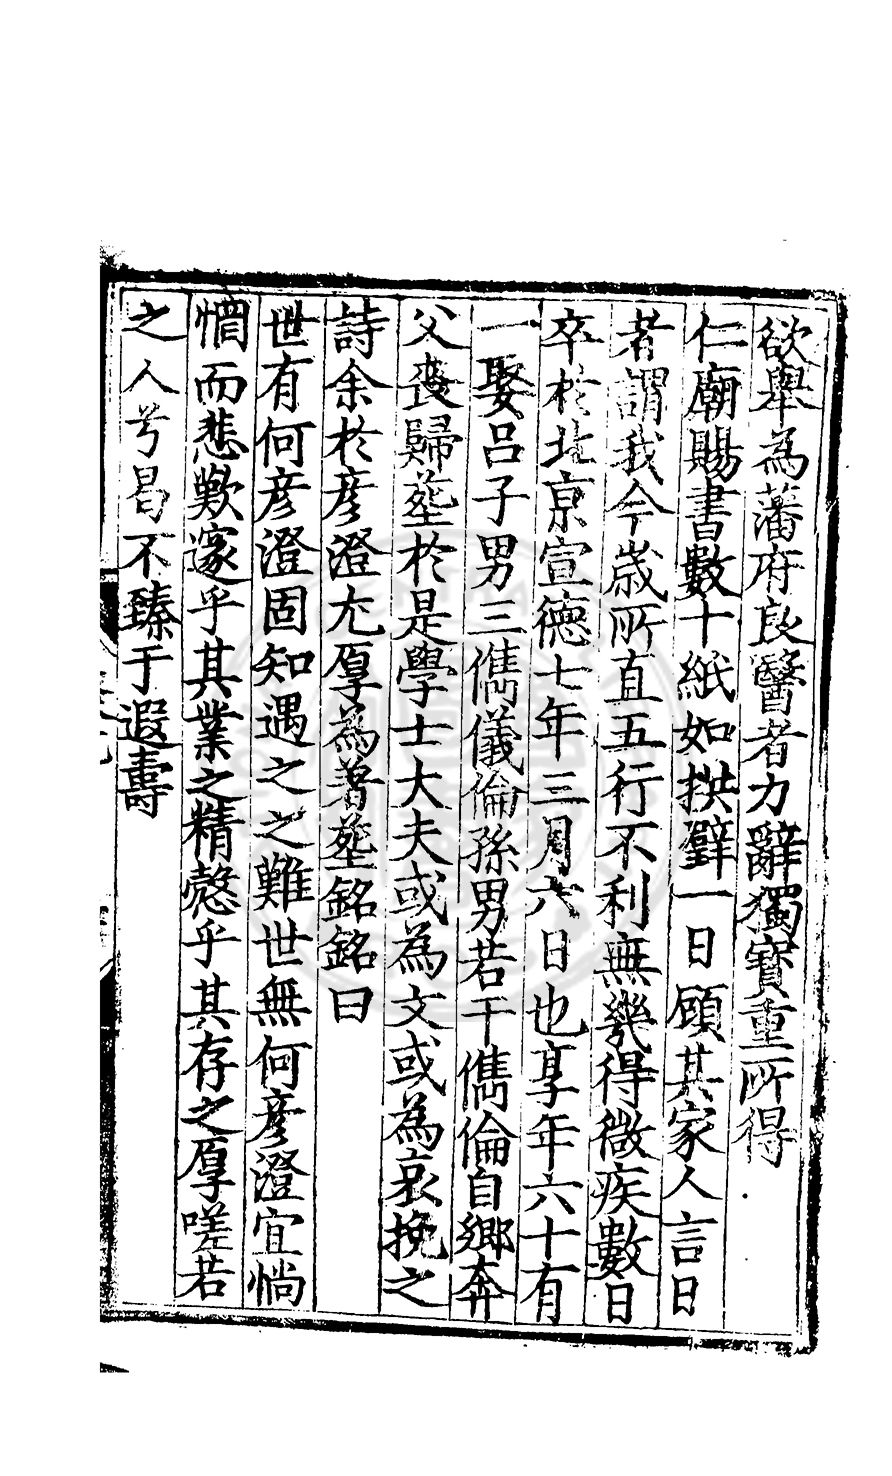 欲舉為藩府良醫者力辭獨寶重所得
仁廟賜書數十紙如拱璧一日顧其家人言日
者謂我今歲所直五行不利無幾得微疾數日
卒於北京宣德七年三月六日也享年六十有
一娶呂子男三儁儀倫孫男若干儁倫自鄉奔
父喪歸塟於是學士大夫或為文或為哀挽之
詩余於彥澄尤厚為著塟銘銘曰
世有何彥澄固知遇之之難世無何彥澄宜惝
惘而悲歎邃乎其業之精愨乎其存之厚嗟若
之人兮曷不臻于遐壽